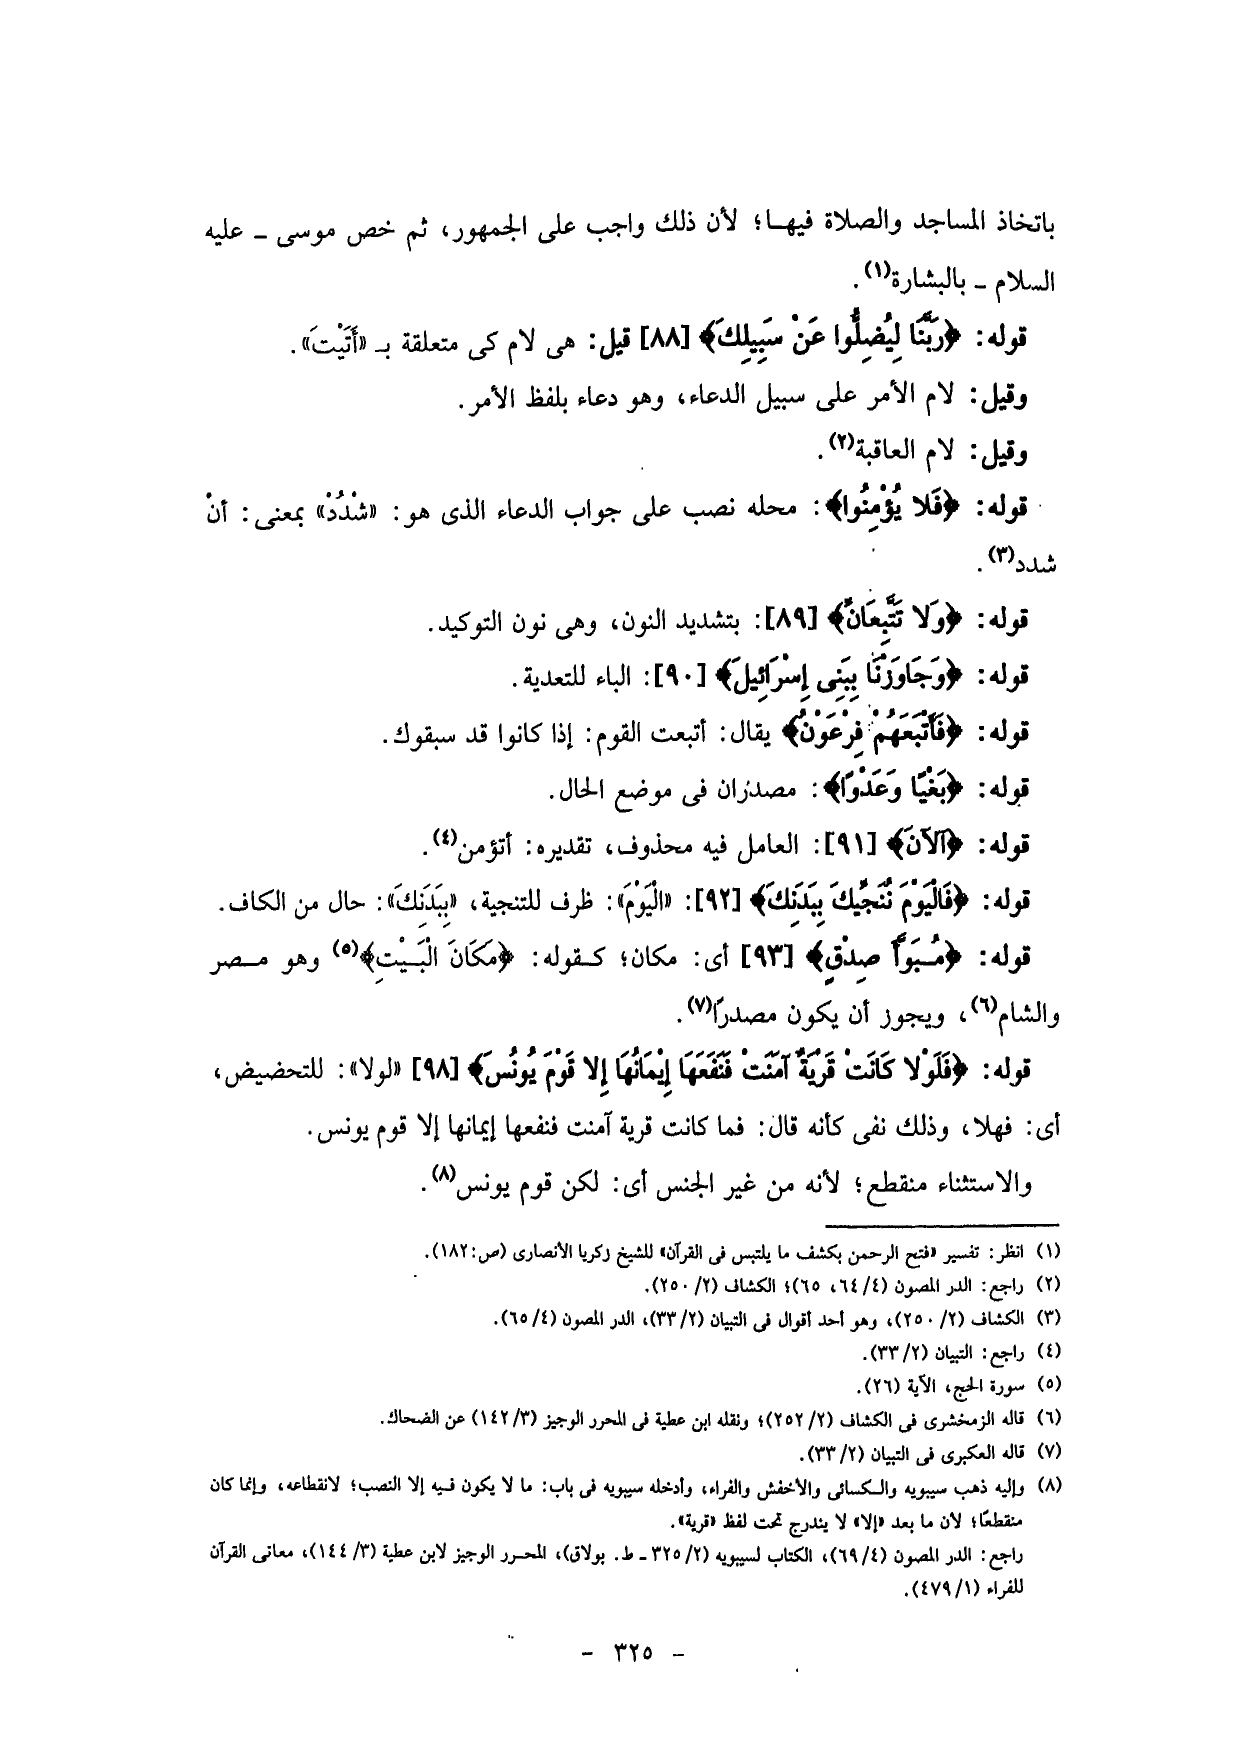 باتخاذ المساجد والصلاة فيهـا؛ لأن ذلك واجب على الجمهور، ثم خص موسى ـ عليه
السلام ـ بالبشارة(١).
قوله: ﴿رَبَّنَا لِيُضِلُّوا عَنْ سَبِيلِكَ﴾ [٨٨] قيل: هى لام كى متعلقة بـ «أَتَيْتَ».
وقيل: لام الأمر على سبيل الدعاء، وهو دعاء بلفظ الأمر.
وقيل: لام العاقبة(٢).
قوله: ﴿فَلا يُؤْمِنُوا﴾: محله نصب على جواب الدعاء الذى هو: «شْدُدْ» بمعنى: أنْ
شدد(٣).
قوله: ﴿وَلا تَتَّبِعَانِّ﴾ [٨٩]: بتشديد النون، وهى نون التوكيد.
قوله: ﴿وَجَاوَزْنَا بِبَنِى إِسْرَائِيلَ﴾ [٩٠]: الباء للتعدية.
قوله: ﴿فَأَتْبَعَهُمْ فِرْعَوْنُ﴾ يقال: أتبعت القوم: إذا كانوا قد سبقوك.
قوله: ﴿بَغْيًا وَعَدْوًا﴾: مصدران فى موضع الحال.
قوله: ﴿آلآنَ﴾ [٩١]: العامل فيه محذوف، تقديره: أتؤمن(٤).
قوله: ﴿فَالْيَوْمَ نُنَجِّيكَ بِبَدَنِكَ﴾ [٩٢]: «الْيَوْمَ»: ظرف للتنجية، «بِبَدَنِكَ»: حال من الكاف.
قوله: ﴿مُـبَوَّأَ صِدْقٍ﴾ [٩٣] أى: مكان؛ كـقوله: ﴿مَكَانَ الْبَـيْتِ﴾(٥) وهو مـصر
والشام(٦)، ويجوز أن يكون مصدرًا(٧).
قوله: ﴿فَلَوْلا كَانَتْ قَرْيَةٌ آمَنَتْ فَنَفَعَهَا إِيمَانُهَا إِلا قَوْمَ يُونُسَ﴾ [٩٨] «لولا»: للتحضيض،
أى: فهلا، وذلك نفى كأنه قال: فما كانت قرية آمنت فنفعها إيمانها إلا قوم يونس.
والاستثناء منقطع؛ لأنه من غير الجنس أى: لكن قوم يونس(٨).
(١) انظر: تفسير «فتح الرحمن بكشف ما يلتبس فى القرآن» للشيخ زكريا الأنصارى (ص:١٨٢).
(٢) راجع: الدر المصون (٤/٦٤، ٦٥)؛ الكشاف (٢/٢٥٠).
(٣) الكشاف (٢/٢٥٠)، وهو أحد أقوال فى التبيان (٢/٣٣)، الدر المصون (٤/٦٥).
(٤) راجع: التبيان (٢/٣٣).
(٥) سورة الحج، الآية (٢٦).
(٦) قاله الزمخشرى فى الكشاف (٢/٢٥٢)؛ ونقله ابن عطية فى المحرر الوجيز (٣/١٤٢) عن الضحاك.
(٧) قاله العكبرى فى التبيان (٢/٣٣).
(٨) وإليه ذهب سيبويه والـكسائى والأخفش والفراء، وأدخله سيبويه فى باب: ما لا يكون فـيه إلا النصب؛ لانقطاعه، وإنما كان
منقطعًا؛ لأن ما بعد «إلا» لا يندرج تحت لفظ «قرية».
راجع: الدر المصون (٤/٦٩)، الكتاب لسيبويه (٢/٣٢٥ ـ ط. بولاق)، المحـرر الوجيز لابن عطية (٣/١٤٤)، معانى القرآن
للفراء (١/٤٧٩).
- ٣٢٥ -